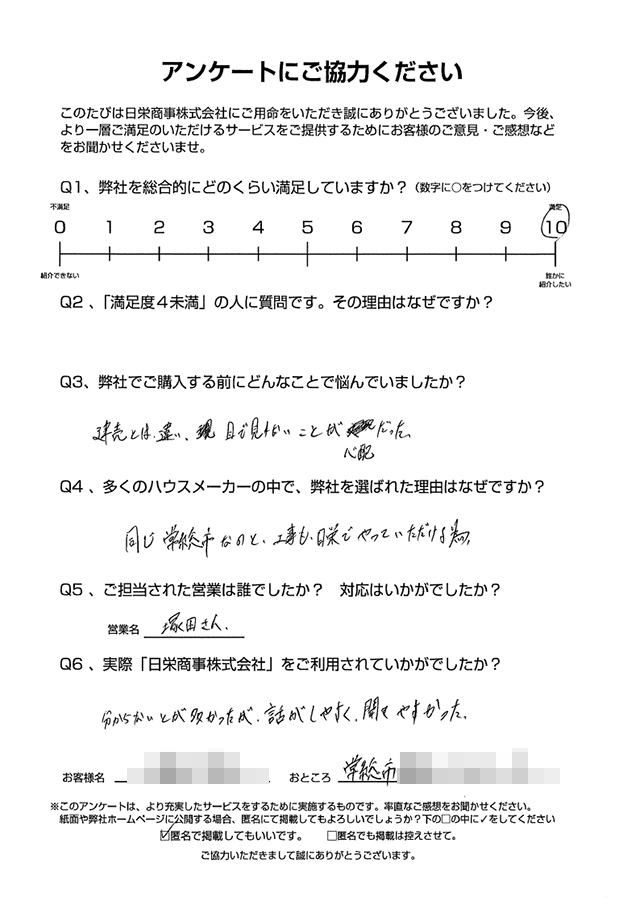 アンケートにご協力ください
このたびは日栄商事株式会社にご用命をいただき誠にありがとうございました。今後、
より一層ご満足のいただけるサービスをご提供するためにお客様のご意見・ご感想など
をお聞かせくださいませ。
Q1、弊社を総合的にどのくらい満足していますか？（数字に○をつけてください）
不満足 満足
0 1 2 3 4 5 6 7 8 9 10
紹介できない 誰かに
紹介したい
Q2 、「満足度４未満」の人に質問です。その理由はなぜですか？
Q3、弊社でご購入する前にどんなことで悩んでいましたか？
建売とは違い、目で見れないことが心配だった。
Q4 、多くのハウスメーカーの中で、弊社を選ばれた理由はなぜですか？
同じ常総市なのと、工事も日栄でやっていただける為。
Q5 、ご担当された営業は誰でしたか？ 対応はいかがでしたか？
営業名 塚田さん。
Q6 、実際「日栄商事株式会社」をご利用されていかがでしたか？
分からないとが多かったが、話がしやすく、聞きやすかった。
お客様名 おところ 常総市
※このアンケートは、より充実したサービスをするために実施するものです。率直なご感想をお聞かせください。
紙面や弊社ホームページに公開する場合、匿名にて掲載してもよろしいでしょうか？下の□の中に✓をしてください
☑匿名で掲載してもいいです。 □匿名でも掲載は控えさせて。
ご協力いただきまして誠にありがとうございます。